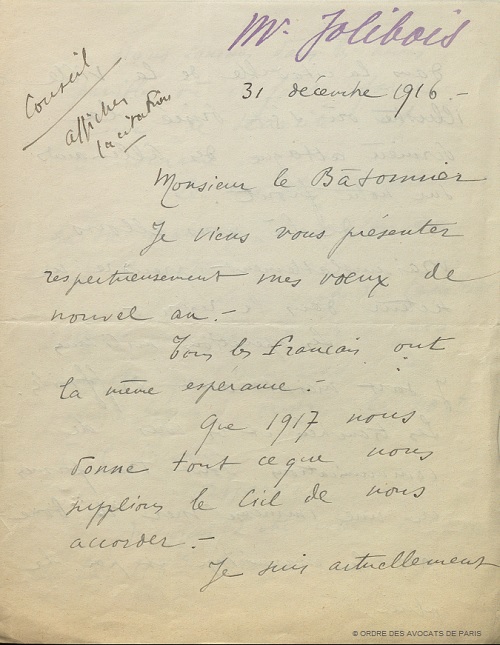 Mr. Jolibois
Conseil
afficher
la citation
31 décembre 1916 -
Monsieur le Bâtonnier
Je viens vous présenter
respectueusement mes voeux de
nouvel an. -
Tous les français ont
la même espérance. -
Que 1917 nous
donne tout ce que nous
supplions le Ciel de nous
accorder. -
Je suis actuellement
© ORDRE DES AVOCATS DE PARIS